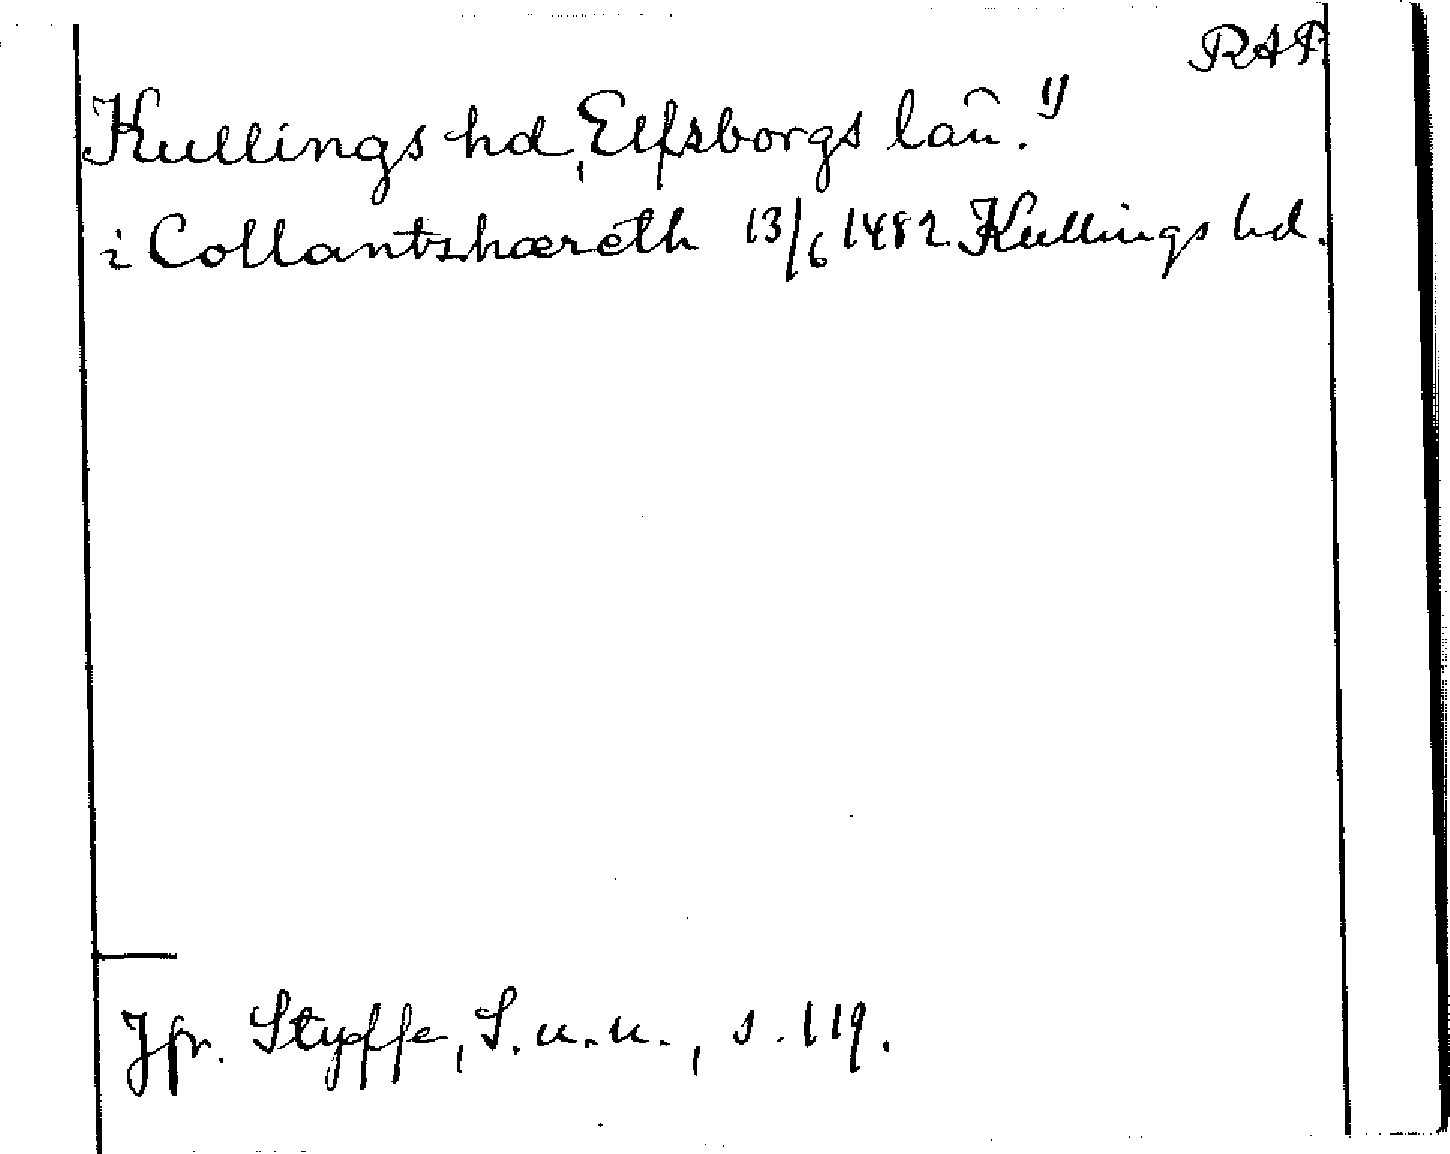 RAP.
Kullings hd, Elfsborgs län. 1)
i Collantzhæreth 13/6 1482 Kullings hd.
Jfr. Styffe, S.u.u., s. 119.